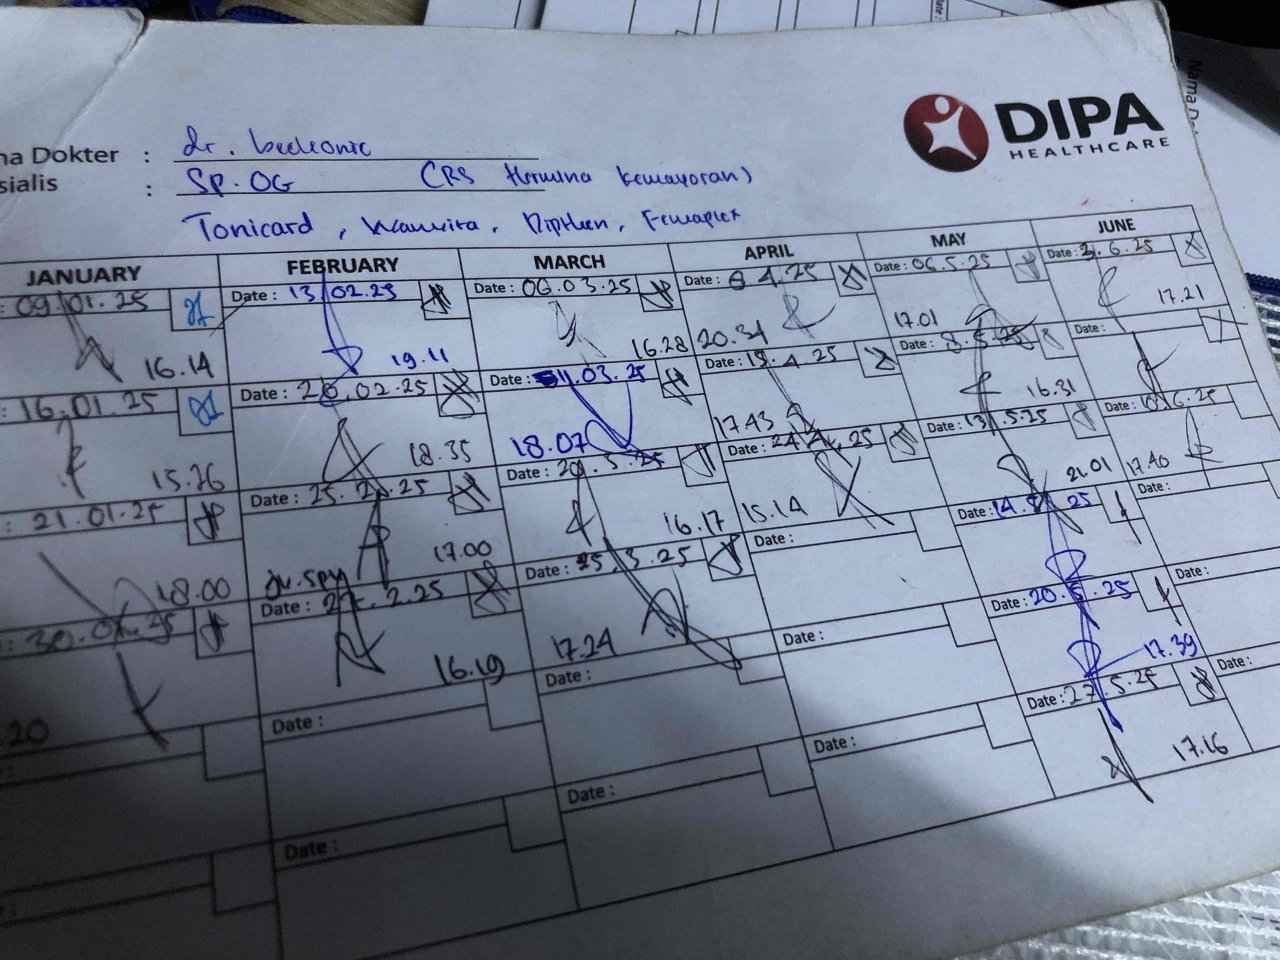 DIPA
HEALTHCARE
na Dokter : dr.
sialis : SP.OG (RS Hermina Kemayoran)
Tonicard,
JANUARY FEBRUARY MARCH APRIL MAY JUNE
: 09.01.25 Date: 13.02.25 Date: 06.03.25 Date: 8 4.25 Date: 06.5.25 Date: .6.25
16.14 19.11 16.28 20.34 17.01 17.21
: 16.01.25 Date: 20.02.25 Date: 11.03.25 Date: .4.25 Date: 8.5.25 Date:
15.26 18.35 18.07 17.43 16.31
: 21.01.25 Date: 25.2.25 Date: 20.3.25 Date: 24.4.25 Date: 13.5.25 Date: .6.25
18.00 17.00 16.17 15.14 21.01 17.40
: 30.01.25 Date: 27.2.25 Date: 25.3.25 Date: Date: 14.5.25 Date:
.20 16.19 17.24
: Date: Date: Date: Date: 20.5.25 Date:
17.39
: Date: Date: Date: Date: 27.5.25 Date:
17.16